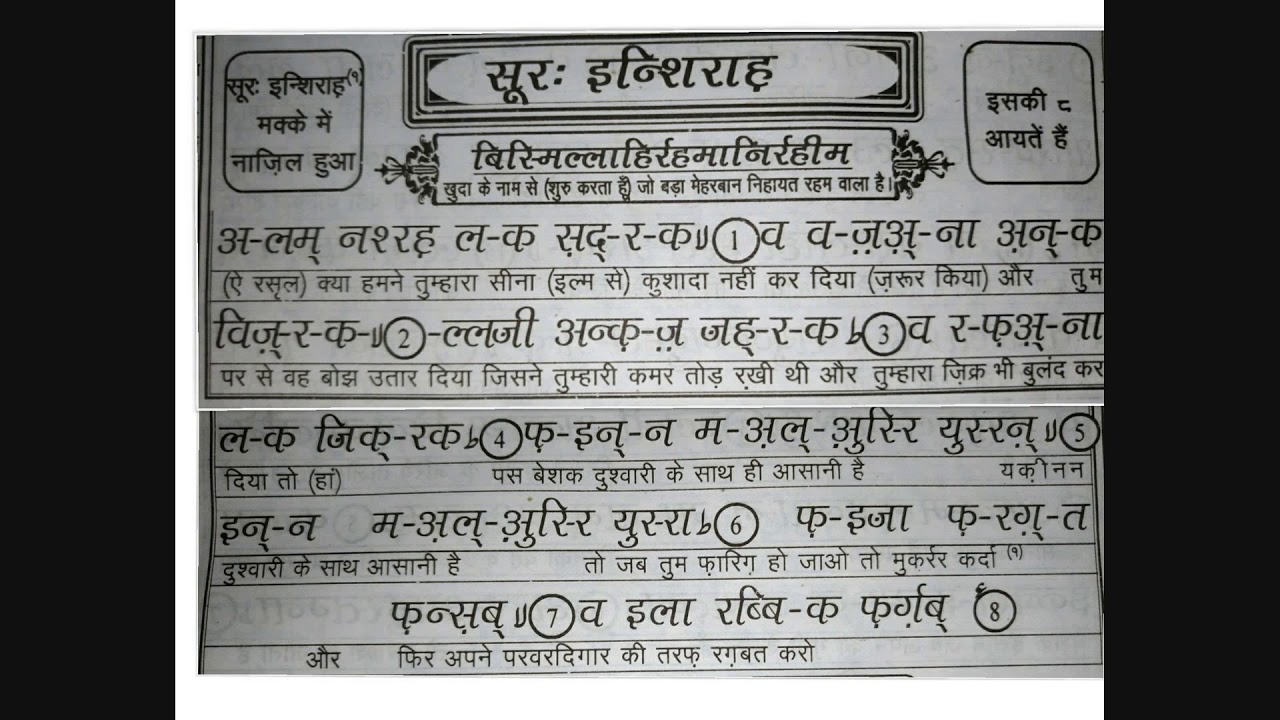 सूरः इन्शिराह़
सूरः इन्शिराह़(१)
मक्के में
नाज़िल हुआ
इसकी ८
आयतें हैं
बिस्मिल्लाहिर्रहमानिर्रहीम
खुदा के नाम से (शुरु करता हूँ) जो बड़ा मेहरबान निहायत रहम वाला है।
अ-लम् नश्रह़ ल-क स़द्-र-क 1 व व-ज़़अ़्-ना अ़न्-क
(ऐ रसूल) क्या हमने तुम्हारा सीना (इल्म से) कुशादा नहीं कर दिया (ज़रूर किया) और तुम
विज़्-र-क- 2 -ल्लजी अन्क़-ज़़ जह्-र-क 3 व र-फ़अ़्-ना
पर से वह बोझ उतार दिया जिसने तुम्हारी कमर तोड़ रख़ी थी और तुम्हारा ज़िक्र भी बुलंद कर
ल-क जिक्-रक 4 फ़-इन्-न म-अ़ल्-अ़ुस्रि युस्रन् 5
दिया तो (हां) पस बेशक दुश्वारी के साथ ही आसानी है यक़ीनन
इन्-न म-अ़ल्-अ़ुस्रि युस्रा 6 फ़-इजा फ़-रग़्-त
दुश्वारी के साथ आसानी है तो जब तुम फ़ारिग़ हो जाओ तो मुकर्रर कर्दा (१)
फ़न्स़ब् 7 व इला रब्बि-क फ़र्ग़ब् 8
और फिर अपने परवरदिगार की तरफ़ रग़बत करो